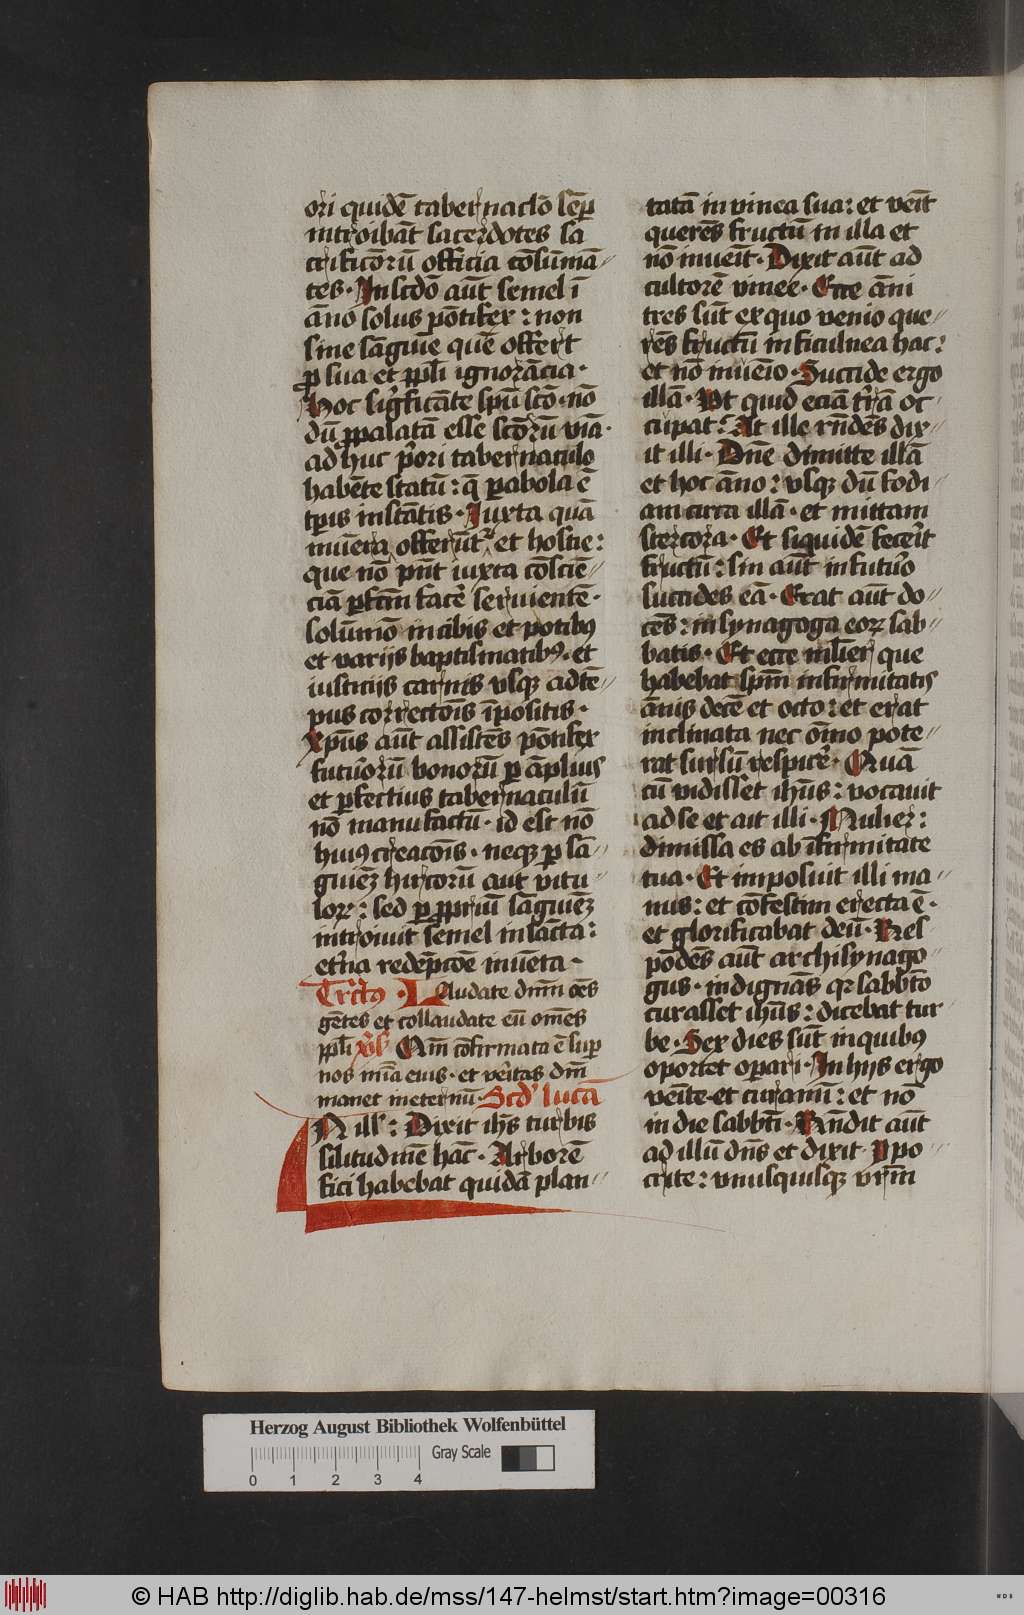 ori quidē tabernaclō sēꝑ
introibāt sacerdotes sa
crificōrū officia cōsūmā
tes. In scdō aūt semel ī
āno solus pōtifex: non
sine sāguīe quē offert
ꝓ sua et ppl̄i ignorācia.
Hoc sigficāte spū scō. nō
dū ꝓpalatā esse scōrū viā.
ad huc p̄ori tabernaculo
habēte statū: q̄ ꝑabola ē
tp̄is instātis. Iuxta quā
mūera offerūtʳ et hostie:
que nō pn̄t iuxta cōsciē
ciā ꝑfcm̄ facē seruientē.
solūmō in cibis et potibꝰ
et varijs baptismatibꝰ. et
iusticijs carnis vsqꝫ ad tē
pus correctōis īpositis.
Xpūs aūt assistēs pōtifex
futuōrū bonorū ꝑ āplius
et ꝑfectius tabernaculū
nō manufactū. id est nō
huiꝰ creacōis. neqꝫ ꝑ sā
guiēꝫ hircorū aut vitu
loꝝ: sed ꝑ ꝓpriū sāguiēꝫ
introiuit semel in sācta:
et̄na redēpcōe inuēta.
Tr̄ctꝰ. LAudate dnm̄ oēs
gētes et collaudate eū om̄es
ppl̄i v̄s Qm̄ cōfirmata ē suꝑ
nos mīa eius. et v̄itas dn̄i
manet in eternū. Scd̄ʾ lucā
IN ill': Dixit ihs̄ turbis
silitudinē hāc. Arborē
fici habebat quidā plan
tatā in vinea sua: et venīt
querēs fructū in illa et
nō inuēit. Dixit aūt ad
cultorē vinee. Ecce āni
tres sūt ex quo venio que
rēs fructū in ficulnea hac:
et nō inuēio. Succide ergo
illā. Vt quid eciā tr̄ā oc
cupat: At ille rn̄dēs dix
it illi. Dn̄e dimitte illā
et hoc āno: vsqꝫ dū fodi
am circa illā. et mittam
stercora. Et siquidē fecēit
fructū: sin aūt in futuō
succides eā. Erat aūt do
cēs: in synagoga eoꝝ sab
batis. Et ecce ml̄ier que
habebat spm̄ infirmitatis
ānis decē et octo: et erat
inclinata nec oīno pote
rat sursū respicē. Quā
cū vidisset ihūs: vocauit
ad se et ait illi. Mulier:
dimissa es ab īfirmitate
tua. Et imposuit illi ma
nus: et cōfestim erecta ē.
et glorificabat deū. Res
pōdēs aūt archisynago
gus. indignās qꝛ sabbtō
curasset ihūs: dicebat tur
be. Sex dies sūt in quibꝰ
oportet oꝑari. In hijs ergo
venīte. et curamī: et nō
in die sabbti. Rn̄dit aūt
ad illū dn̄s et dixit. Ypo
crite: vnusquisqꝫ vrm̄
Herzog August Bibliothek Wolfenbüttel
Gray Scale
0 1 2 3 4
© HAB http://diglib.hab.de/mss/147-helmst/start.htm?image=00316